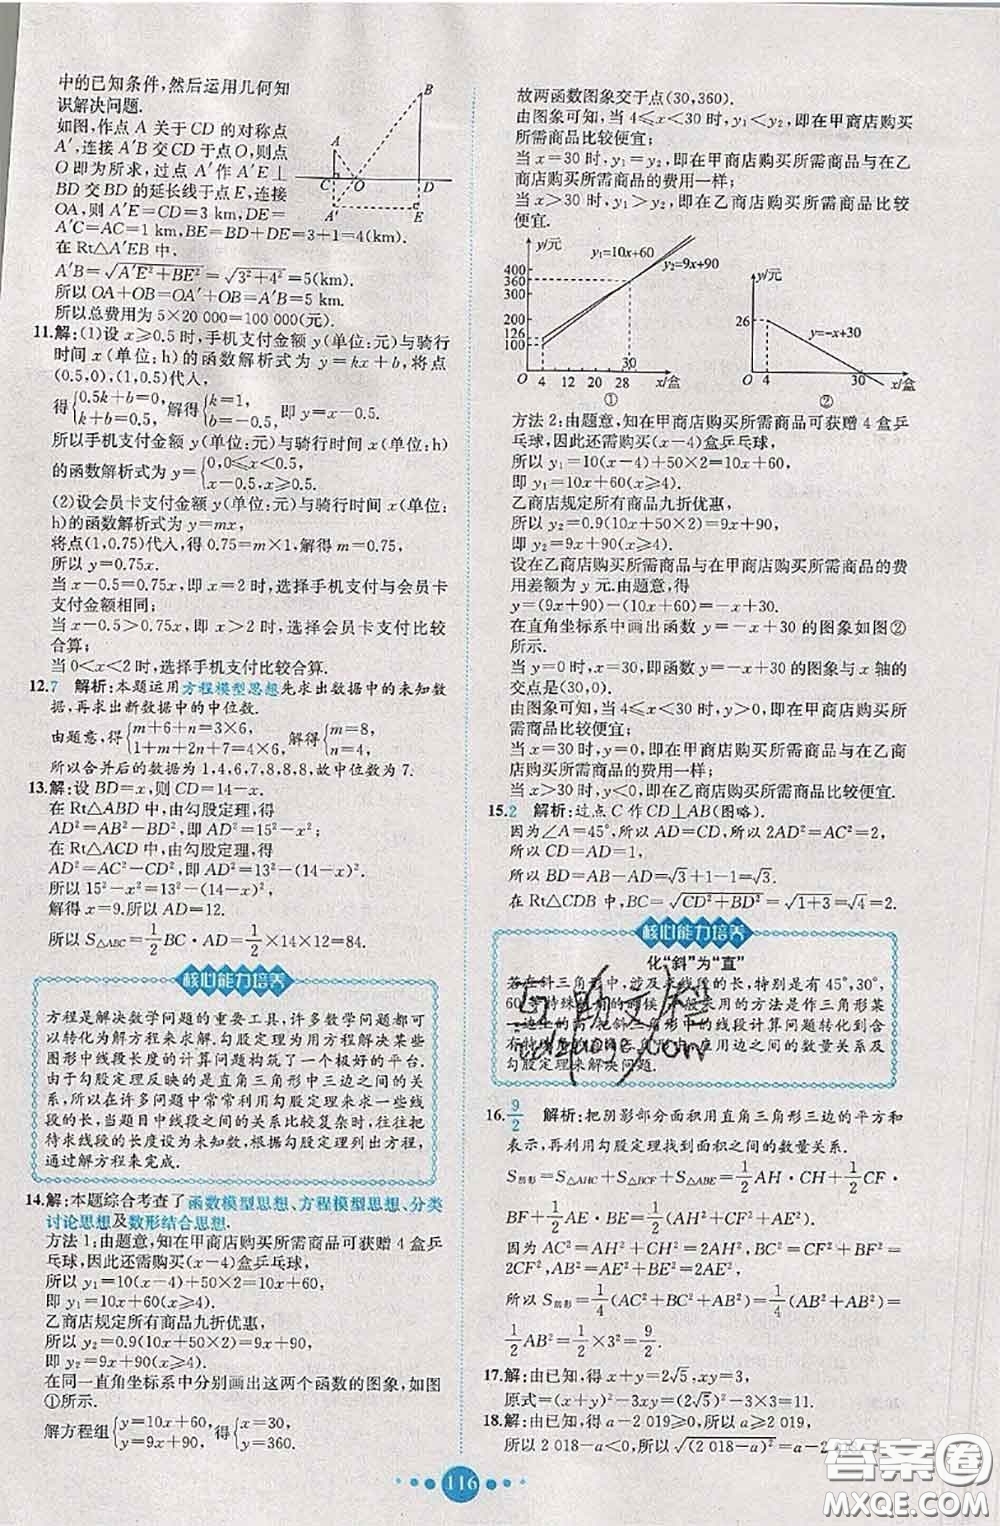 中的已知条件,然后运用几何知
识解决问题.
如图,作点 A 关于 CD 的对称点
A′,连接 A′B 交 CD 于点 O,则点
O 即为所求,过点 A′作 A′E⊥
BD 交 BD 的延长线于点 E,连接
OA,则 A′E=CD=3 km,DE=
A′C=AC=1 km,BE=BD+DE=3+1=4(km).
在 Rt△A′EB 中,
A′B=√(A′E²+BE²)=√(3²+4²)=5(km).
所以 OA+OB=OA′+OB=A′B=5(km).
所以总费用为 5×20 000=100 000(元).
B
A
C
O
D
A′
E
11.解:(1)设 x≥0.5 时,手机支付金额 y(单位:元)与骑行
时间 x(单位:h)的函数解析式为 y=kx+b,将点
(0.5,0),(1,0.5)代入,
得{0.5k+b=0, k+b=0.5, 解得{k=1, b=-0.5, 即 y=x-0.5.
所以手机支付金额 y(单位:元)与骑行时间 x(单位:h)
的函数解析式为 y={0,0≤x<0.5, x-0.5,x≥0.5.
(2)设会员卡支付金额 y(单位:元)与骑行时间 x(单位:
h)的函数解析式为 y=mx,
将点(1,0.75)代入,得 0.75=m×1,解得 m=0.75,
所以 y=0.75x.
当 x-0.5=0.75x,即 x=2 时,选择手机支付与会员卡
支付金额相同;
当 x-0.5>0.75x,即 x>2 时,选择会员卡支付比较
合算;
当 0<x<2 时,选择手机支付比较合算.
12.7 解析:本题运用方程模型思想先求出数据中的未知数
据,再求出新数据中的中位数.
由题意,得{m+6+n=3×6, 1+m+2n+7=4×6, 解得{m=8, n=4.
所以合并后的数据为 1,4,6,7,8,8,8,故中位数为 7.
13.解:设 BD=x,则 CD=14-x.
在 Rt△ABD 中,由勾股定理,得
AD²=AB²-BD²,即 AD²=15²-x²;
在 Rt△ACD 中,由勾股定理,得
AD²=AC²-CD²,即 AD²=13²-(14-x)².
所以 15²-x²=13²-(14-x)².
解得 x=9.所以 AD=12.
所以 S△ABC=1/2 BC·AD=1/2×14×12=84.
核心能力培养
方程是解决数学问题的重要工具,许多数学问题都可
以转化为解方程来求解.勾股定理为用方程解决某些
图形中线段长度的计算问题构筑了一个极好的平台.
由于勾股定理反映的是直角三角形中三边之间的关
系,所以在许多问题中常常利用勾股定理来求一些线
段的长,当题目中线段的关系比较复杂时,往往把
待求线段的长度设为未知数,根据勾股定理列出方程,
通过解方程来完成.
14.解:本题综合考查了函数模型思想、方程模型思想、分类
讨论思想及数形结合思想.
方法 1:由题意,知在甲商店购买所需商品可获赠 4 盒乒
乓球,因此还需购买(x-4)盒乒乓球,
所以 y₁=10(x-4)+50×2=10x+60,
即 y₁=10x+60(x≥4).
乙商店规定所有商品九折优惠,
所以 y₂=0.9(10x+50×2)=9x+90,
即 y₂=9x+90(x≥4).
在同一直角坐标系中分别画出这两个函数的图象,如图
①所示.
解方程组{y=10x+60, y=9x+90, 得{x=30, y=360.
故两函数图象交于点(30,360).
由图象可知,当 4≤x<30 时,y₁<y₂,即在甲商店购买
所需商品比较便宜;
当 x=30 时,y₁=y₂,即在甲商店购买所需商品与在乙
商店购买所需商品的费用一样;
当 x>30 时,y₁>y₂,即在乙商店购买所需商品比较
便宜.
y/元
y₁=10x+60
y₂=9x+90
400
360
300
200
126
100
O 4 12 20 28
30
x/盒
①
y/元
26
y=-x+30
O 4 30 x/盒
②
方法 2:由题意,知在甲商店购买所需商品可获赠 4 盒乒
乓球,因此还需购买(x-4)盒乒乓球,
所以 y₁=10(x-4)+50×2=10x+60,
即 y₁=10x+60(x≥4).
乙商店规定所有商品九折优惠,
所以 y₂=0.9(10x+50×2)=9x+90,
即 y₂=9x+90(x≥4).
设在乙商店购买所需商品与在甲商店购买所需商品的费
用差额为 y 元.由题意,得
y=(9x+90)-(10x+60)=-x+30.
在直角坐标系中画出函数 y=-x+30 的图象如图②
所示.
当 y=0 时,x=30,即 y=-x+30 的图象与 x 轴的
交点是(30,0).
由图象可知,当 4≤x<30 时,y>0,即在甲商店购买所
需商品比较便宜;
当 x=30 时,y=0,即在甲商店购买所需商品与在乙商
店购买所需商品的费用一样;
当 x>30 时,y<0,即在乙商店购买所需商品比较便宜.
15.2 解析:过点 C 作 CD⊥AB(图略).
因为∠A=45°,所以 AD=CD,所以 2AD²=AC²=2,
所以 CD=AD=1,
所以 BD=AB-AD=√3+1-1=√3.
在 Rt△CDB 中,BC=√(CD²+BD²)=√(1+3)=√4=2.
核心能力培养
化“斜”为“直”
若在斜三角形中,涉及求线段的长,特别是有 45°,30°,
60°等特殊角的时候,一般采用的方法是作三角形某
一边上的高,把斜三角形中的线段计算问题转化到含
有特殊角的直角三角形中,应用边之间的数量关系及
勾股定理来解决问题.
16.9/2 解析:把阴影部分面积用直角三角形三边的平方和
表示,再利用勾股定理找到面积之间的数量关系.
S阴影=S△ACH+S△BCF+S△ABE=1/2 AH·CH+1/2 CF·
BF+1/2 AE·BE=1/2(AH²+CF²+AE²).
因为 AC²=AH²+CH²=2AH²,BC²=CF²+BF²=
2CF²,AB²=AE²+BE²=2AE²,
所以 S阴影=1/4(AC²+BC²+AB²)=1/4(AB²+AB²)=
1/2 AB²=1/2×3²=9/2.
17.解:由已知,得 x+y=2√5,xy=3,
原式=(x+y)²-3xy=(2√5)²-3×3=11.
18.解:由已知,得 a-2 019≥0,所以 a≥2 019,
所以 2 018-a<0,所以 √(2 018-a)²=a-2
116
答案圈
MXQE.COM